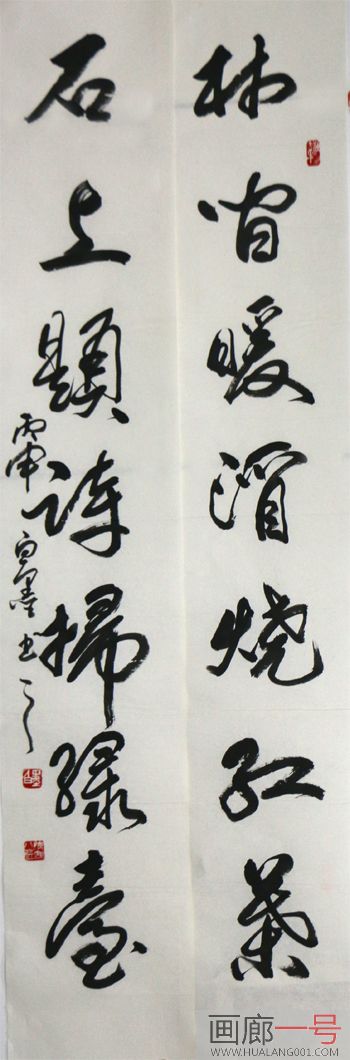 林间暖酒烧红葉
石上題詩掃緑臺
丙申白墨书之
画廊一号
WWW.HUALANG001.COM